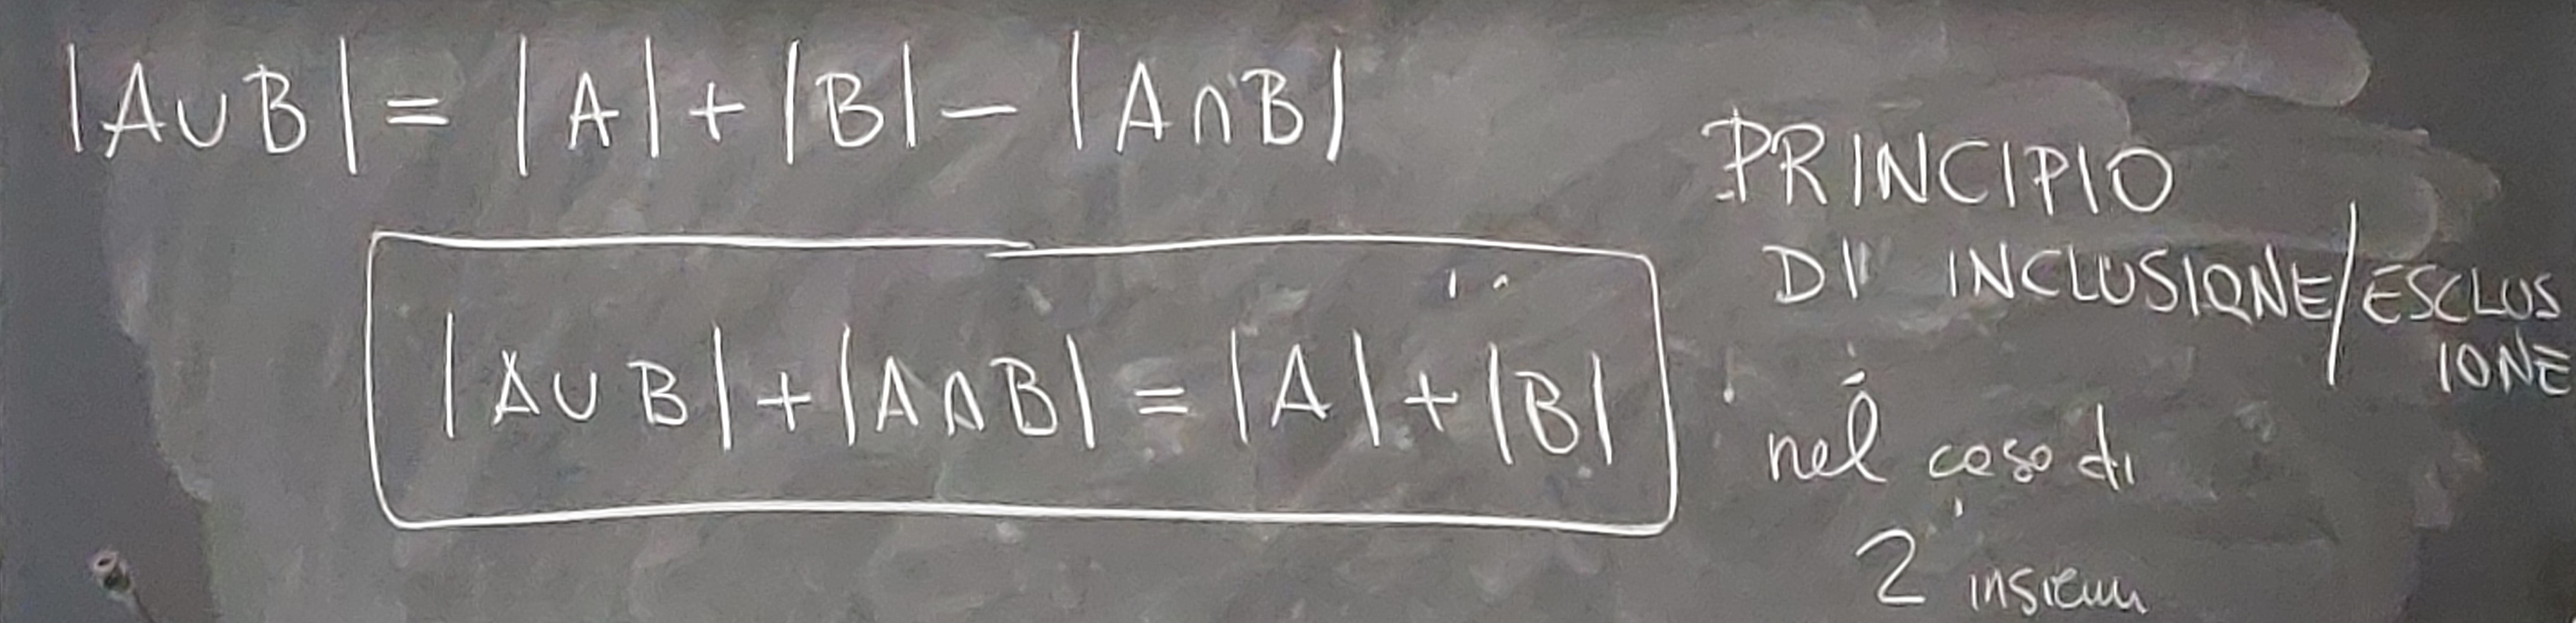 |A∪B| = |A| + |B| − |A∩B|
|A∪B| + |A∩B| = |A| + |B|
PRINCIPIO
DI INCLUSIONE/ESCLUS
IONE
nel caso di
2 insiemi